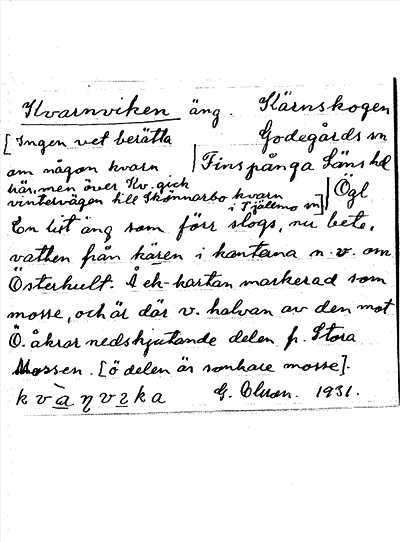 Kvarnviken äng. Kärnskogen
[Ingen vet berätta Godegårds sn
om någon kvarn Finspånga Läns hd
här, men över Kv. gick Ögl
vintervägen till Skönnarbo kvarn
i Tjällmo sn]
En liten äng som förr slogs, nu bete,
vatten från kären i kanterna n.v. om
Österhult. Å ek-kartan markerad som
mosse, och är där v. halvan av den mot
Ö. åkrar nedskjutande delen fr. Stora
Mossen. [ö delen är sankare mosse].
G. Olson. 1931.